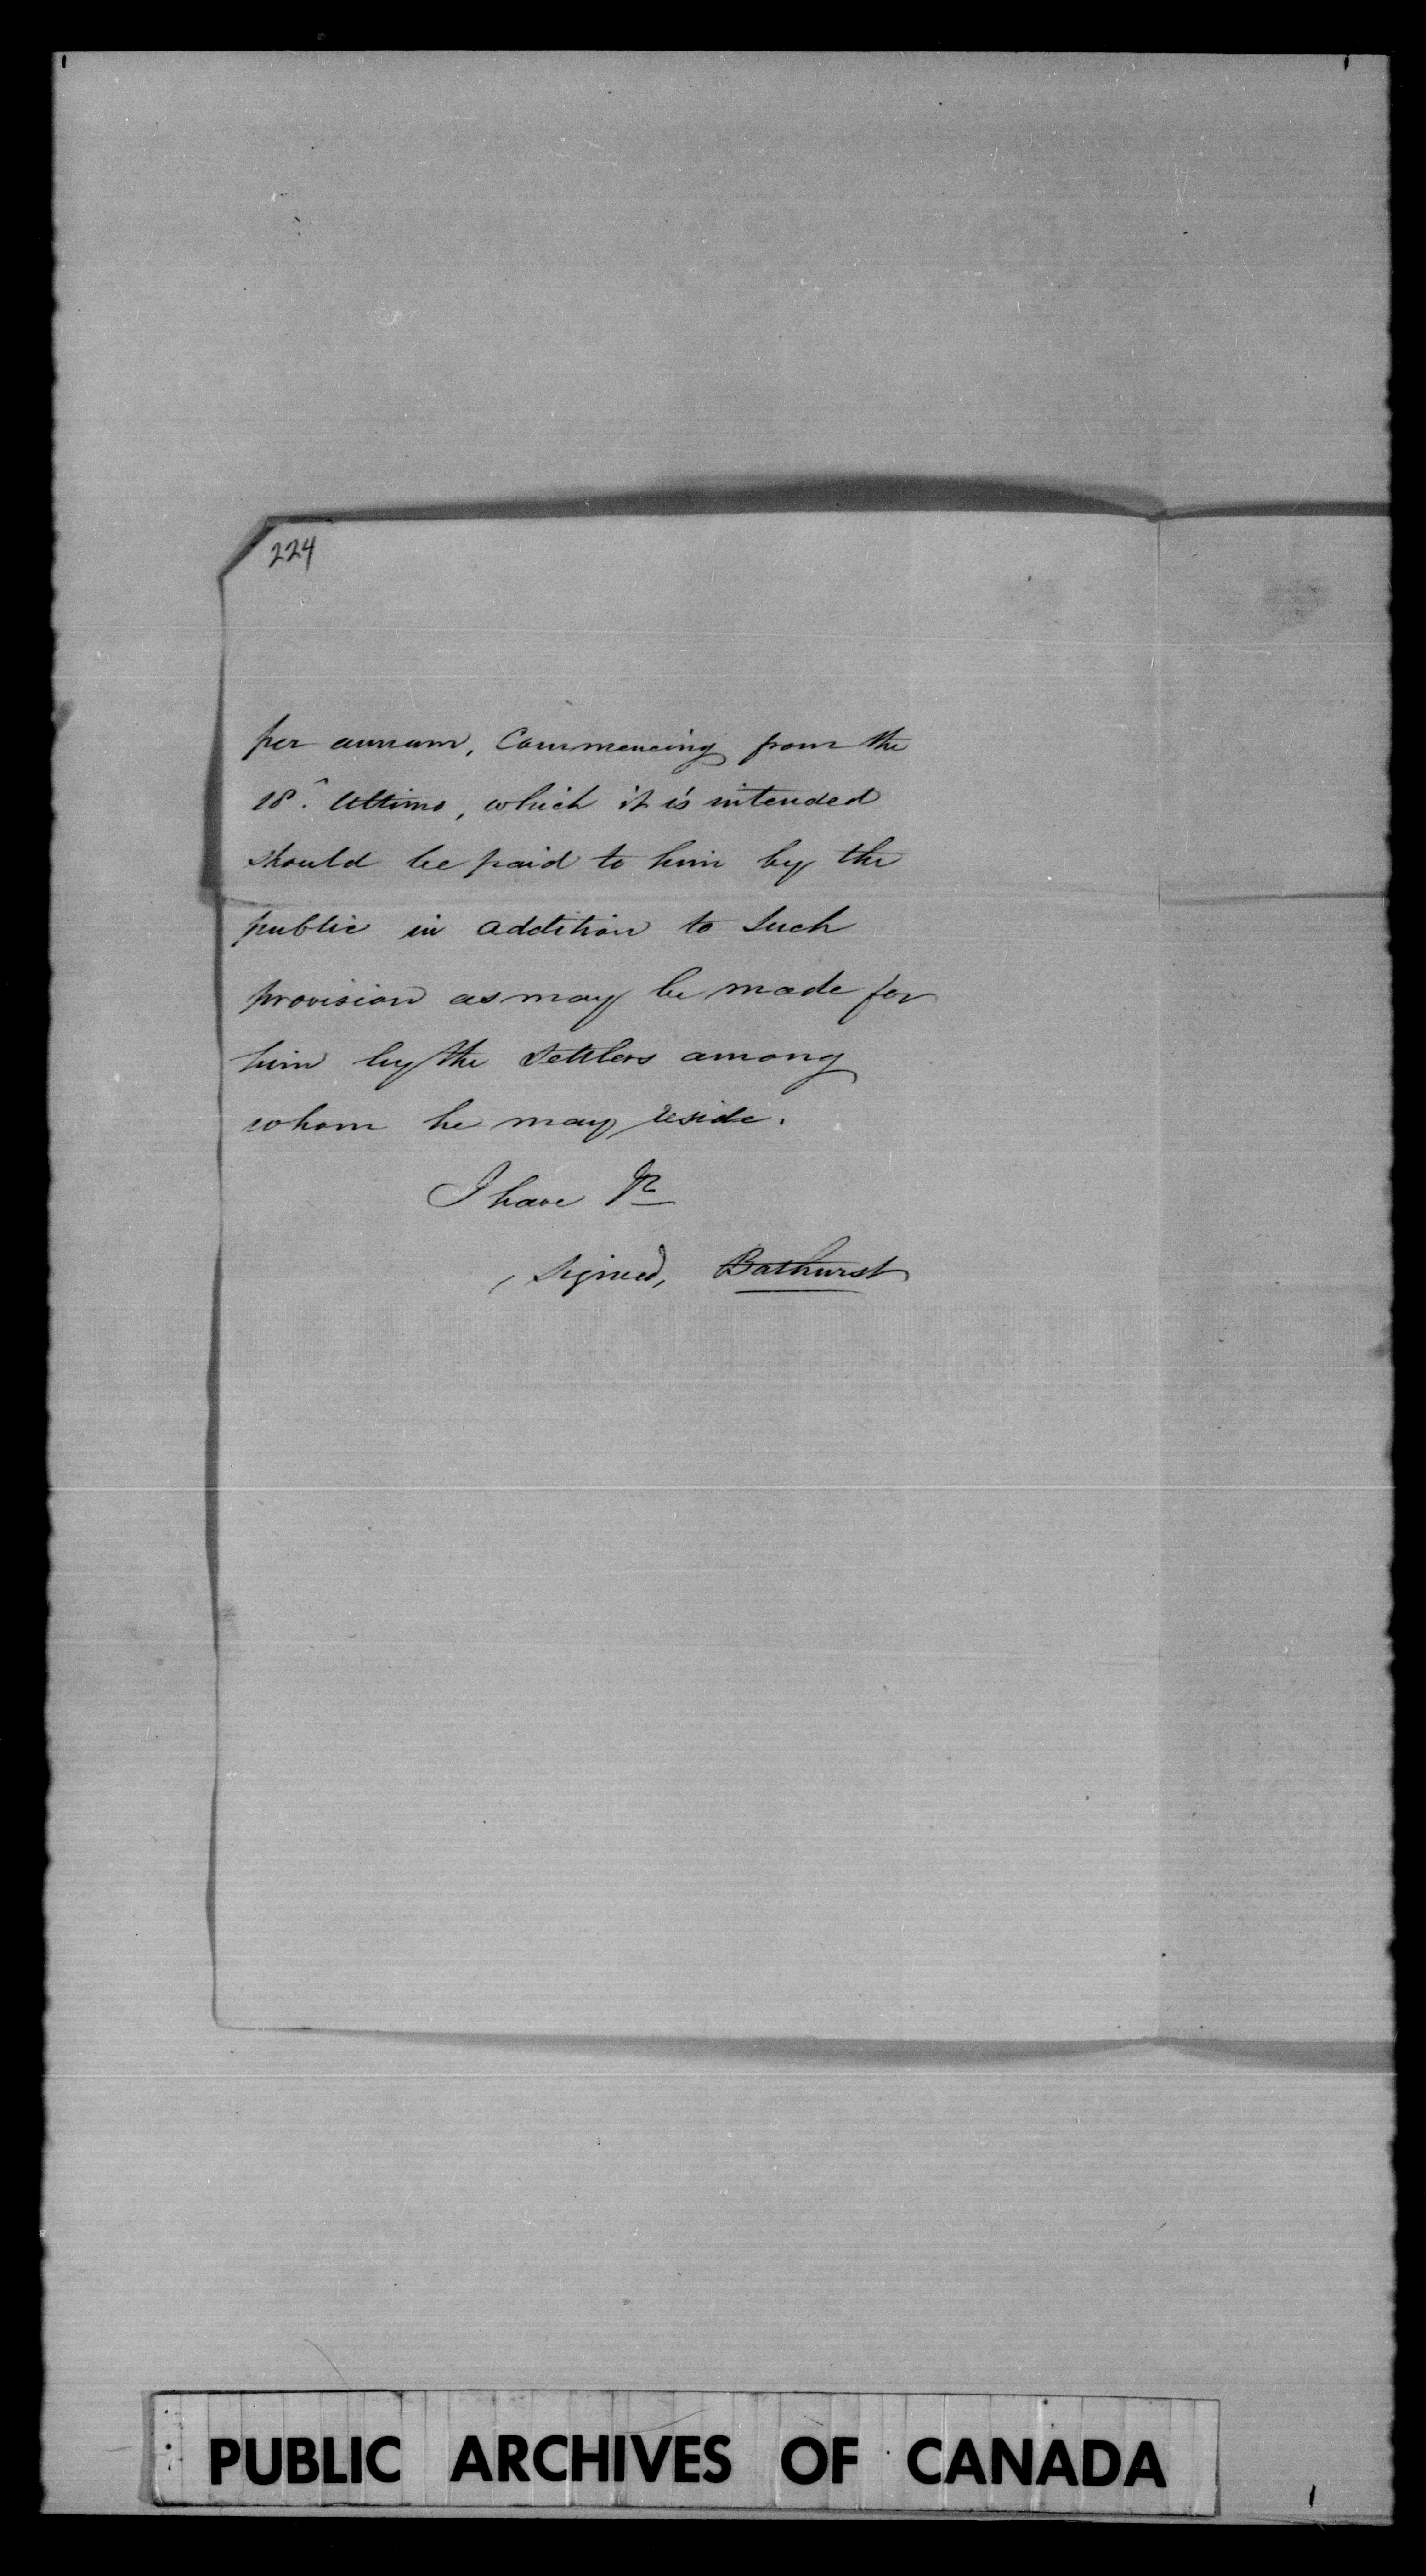 224
per annum, Commencing from the
18^. Ultimo, which it is intended
should be paid to him by the
public in addition to Such
provision as may be made for
him by the Settlers among
whom he may reside.
I have &c
signed, Bathurst
PUBLIC ARCHIVES OF CANADA